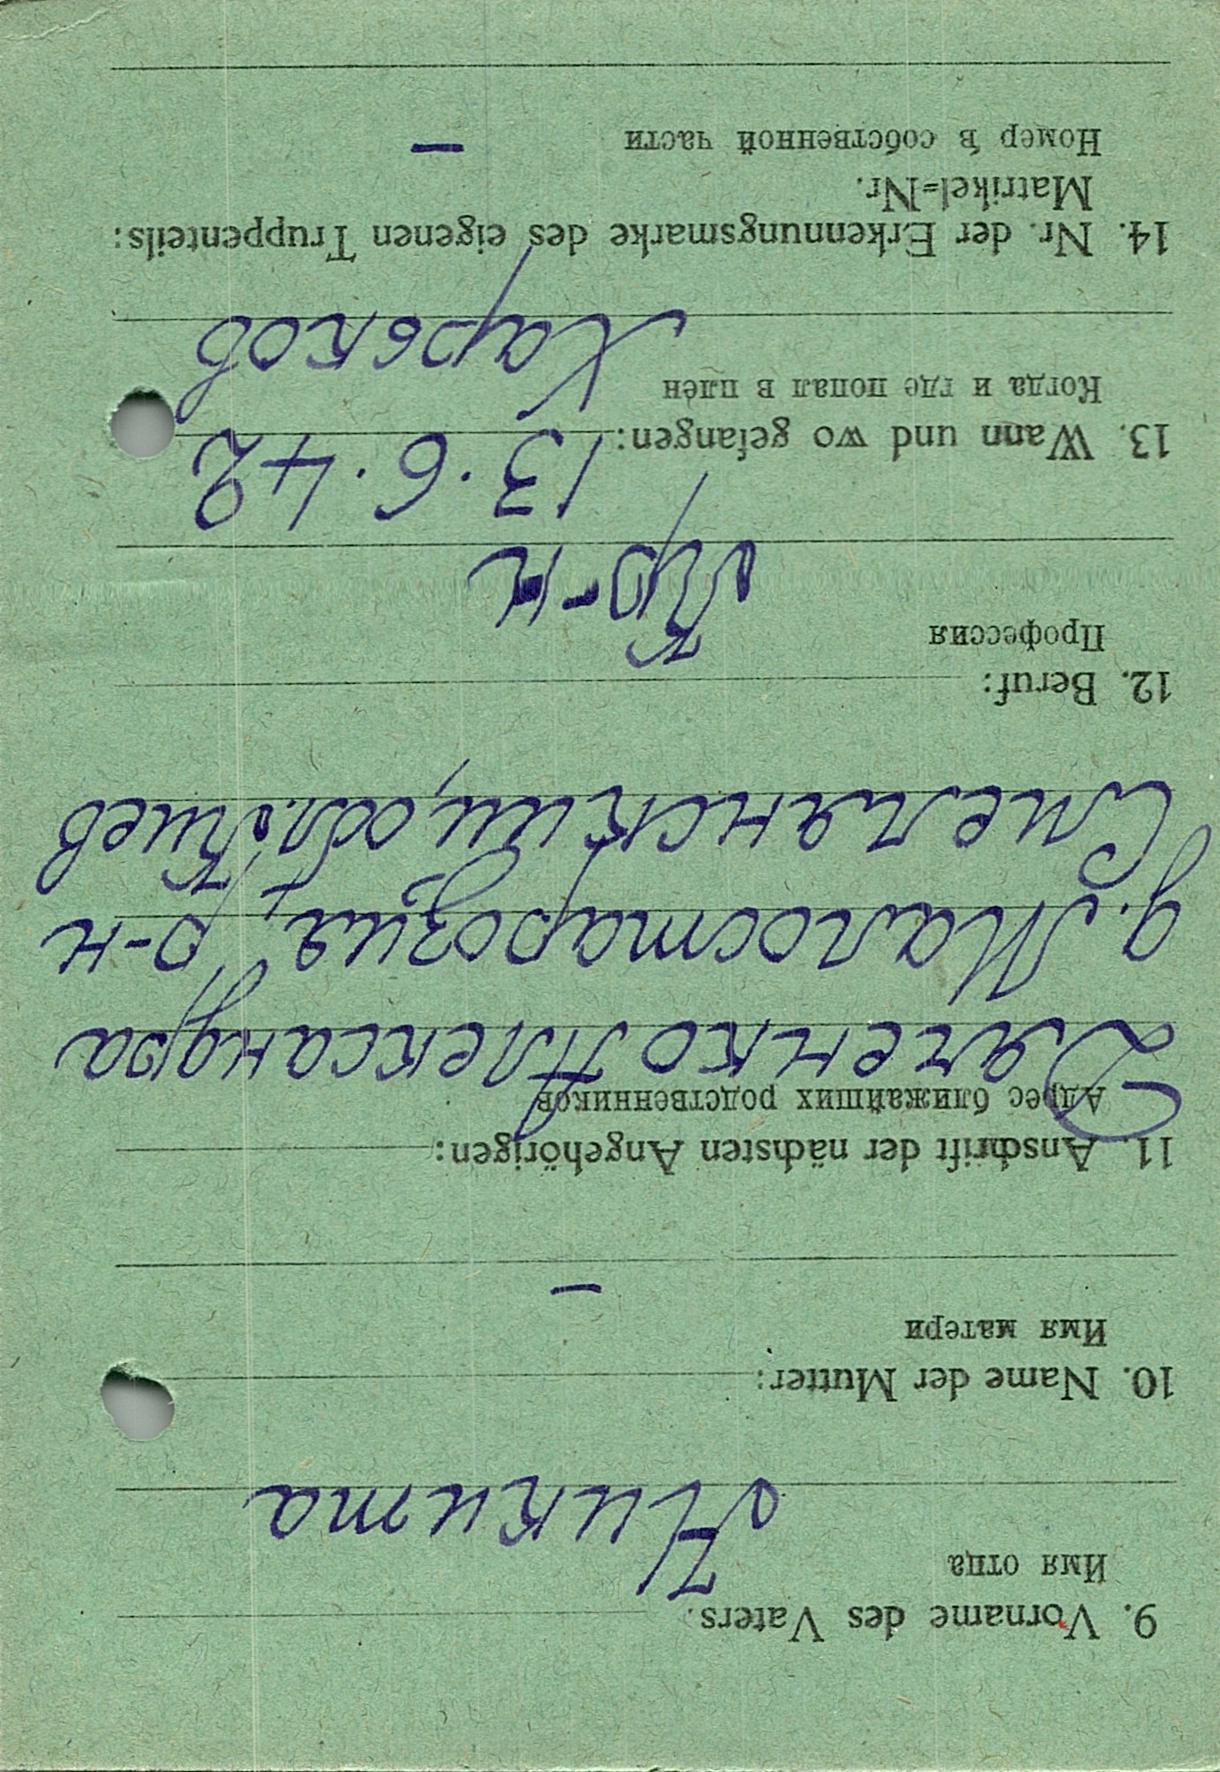 9. Vorname des Vaters.
Имя отца
Никита
10. Name der Mutter:
Имя матери
—
11. Anschrift der nächsten Angehörigen:
Адрес ближайших родственников
Дяченко Александра
д. Малостарозия, р-н
Смелянский, обл. Киев
12. Beruf:
Профессия
Кр-н
13. Wann und wo gefangen:
13.6.42
Когда и где попал в плен
Харьков
14. Nr. der Erkennungsmarke des eigenen Truppenteils:
Matrikel=Nr.
Номер в собственной части —